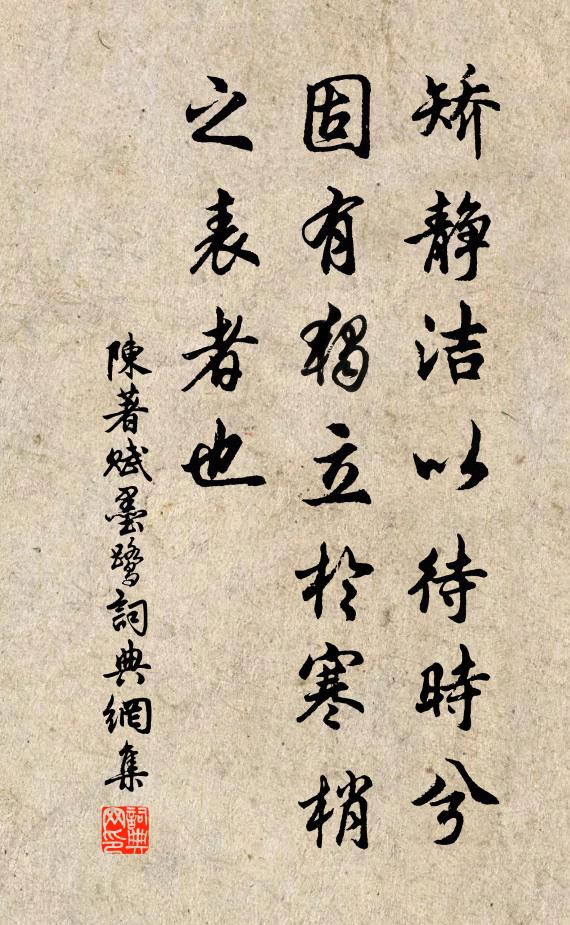 矫静洁以待時兮
固有独立於寒梢
之表者也
陳著賦墨鹭詞典網集
詞典网印